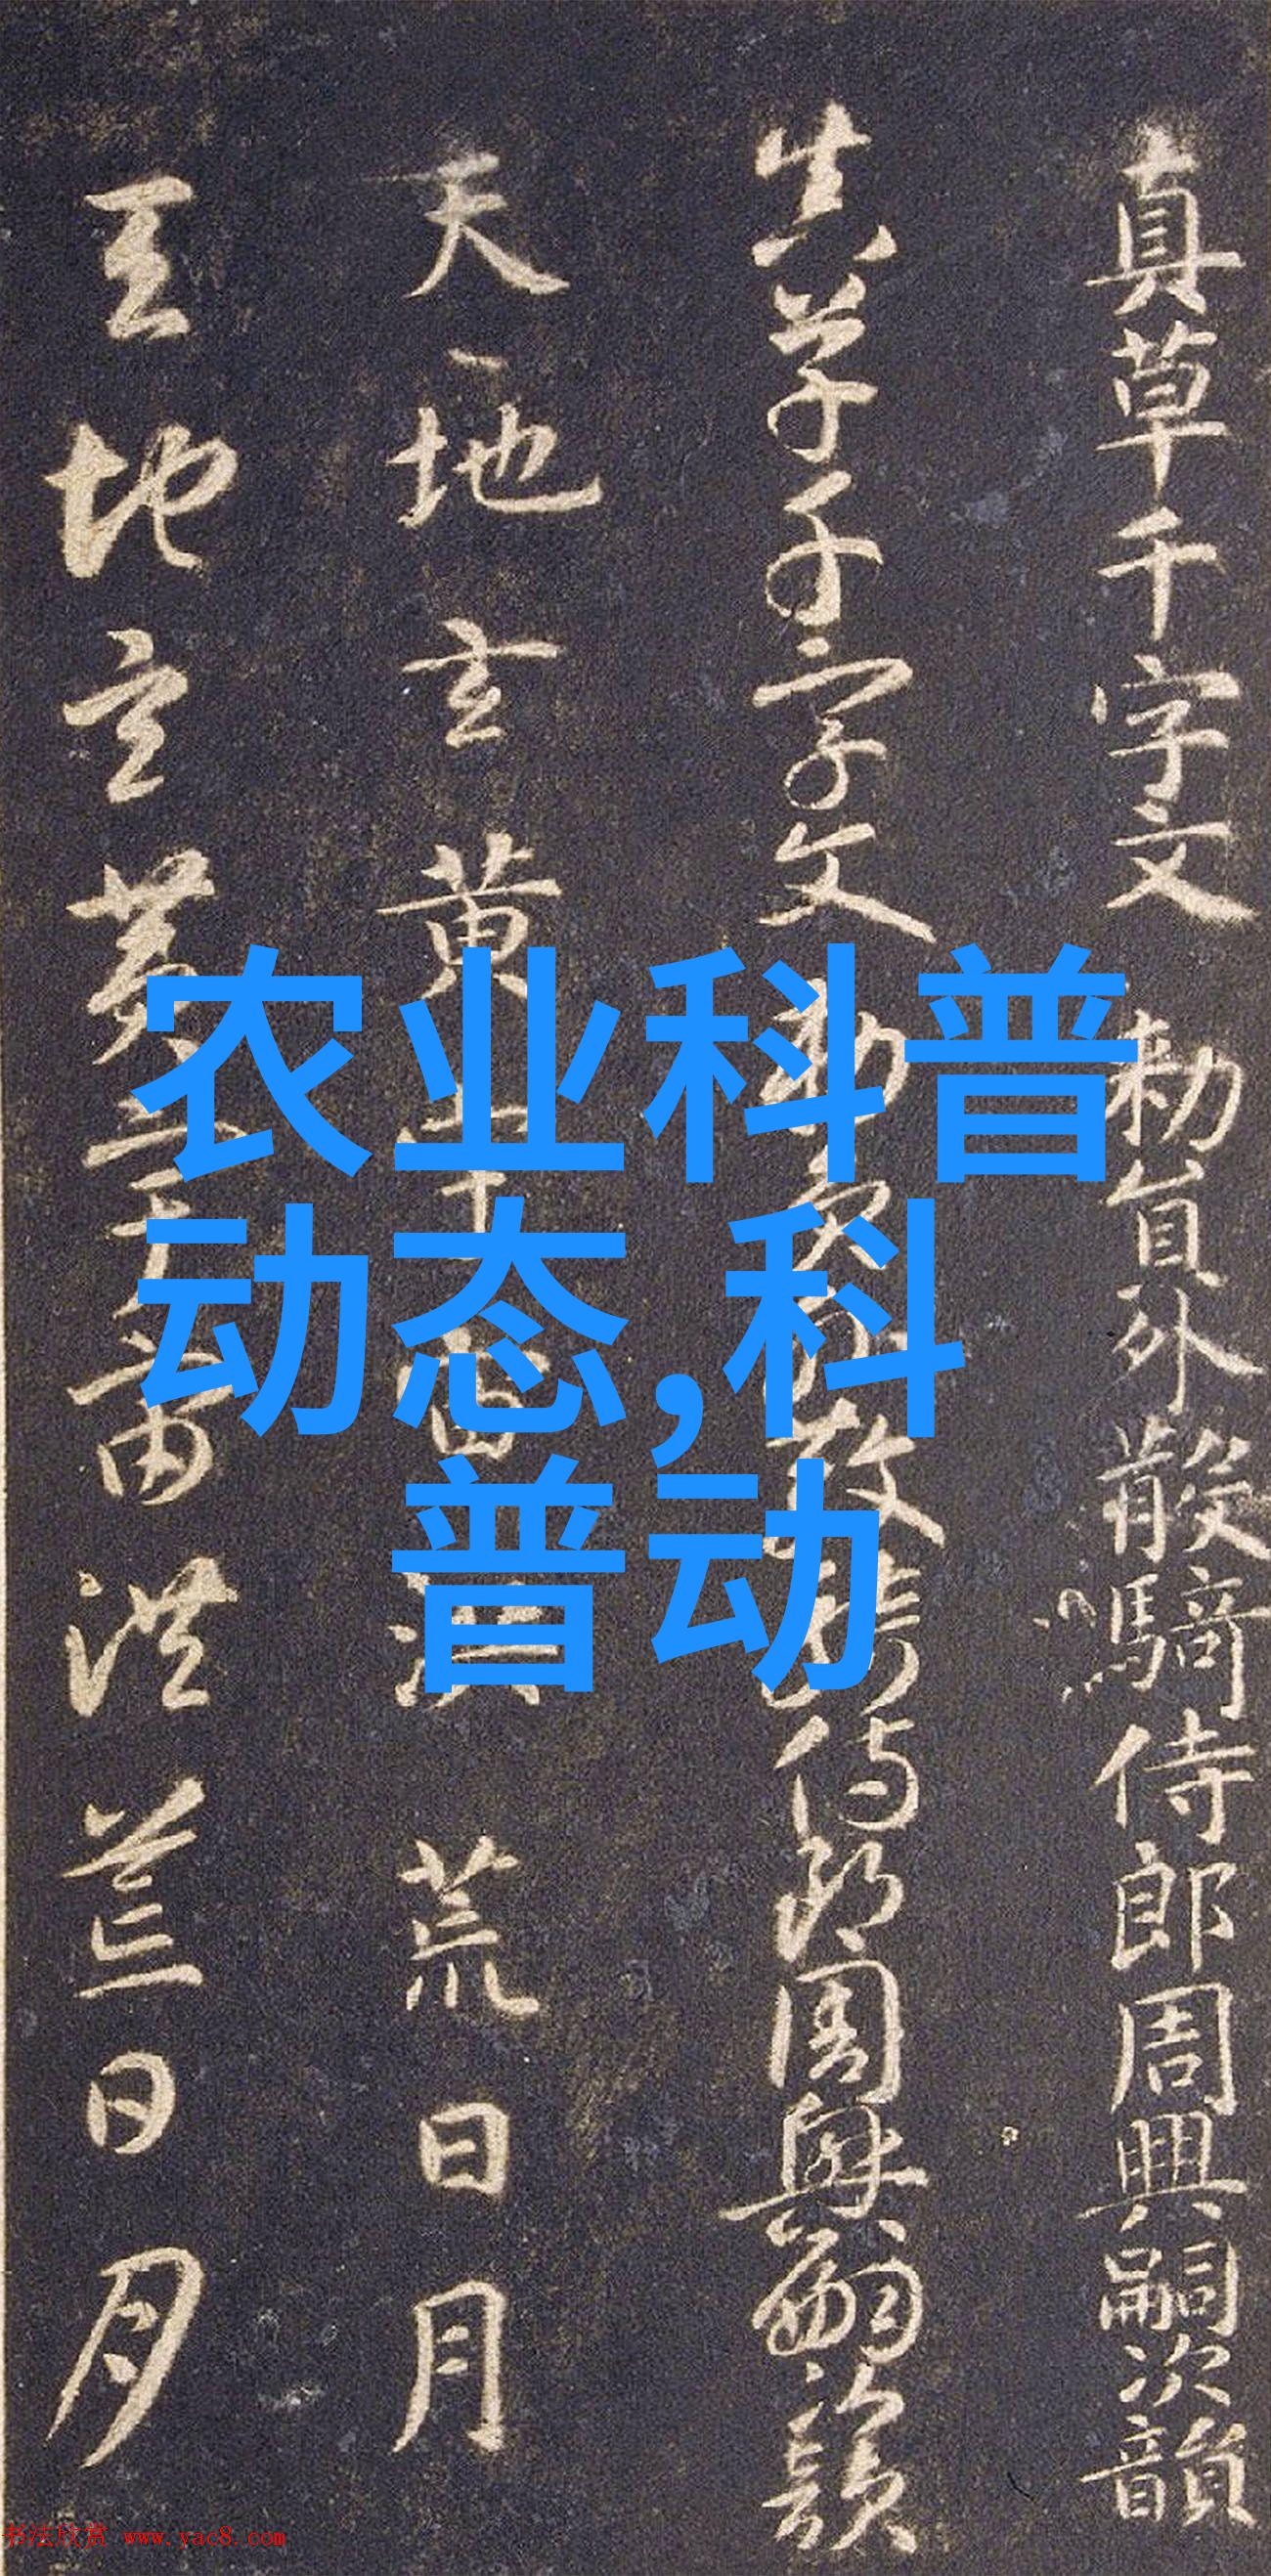 真草千字文 勅員外散騎侍郎周興嗣次韻
真草千字文 勅員外散騎侍郎周興嗣次韻
天地玄黄宇宙洪荒日月
天地玄黄宇宙洪荒日月
农业科普
动态,科
普动
书法欣赏 www.yac8.com